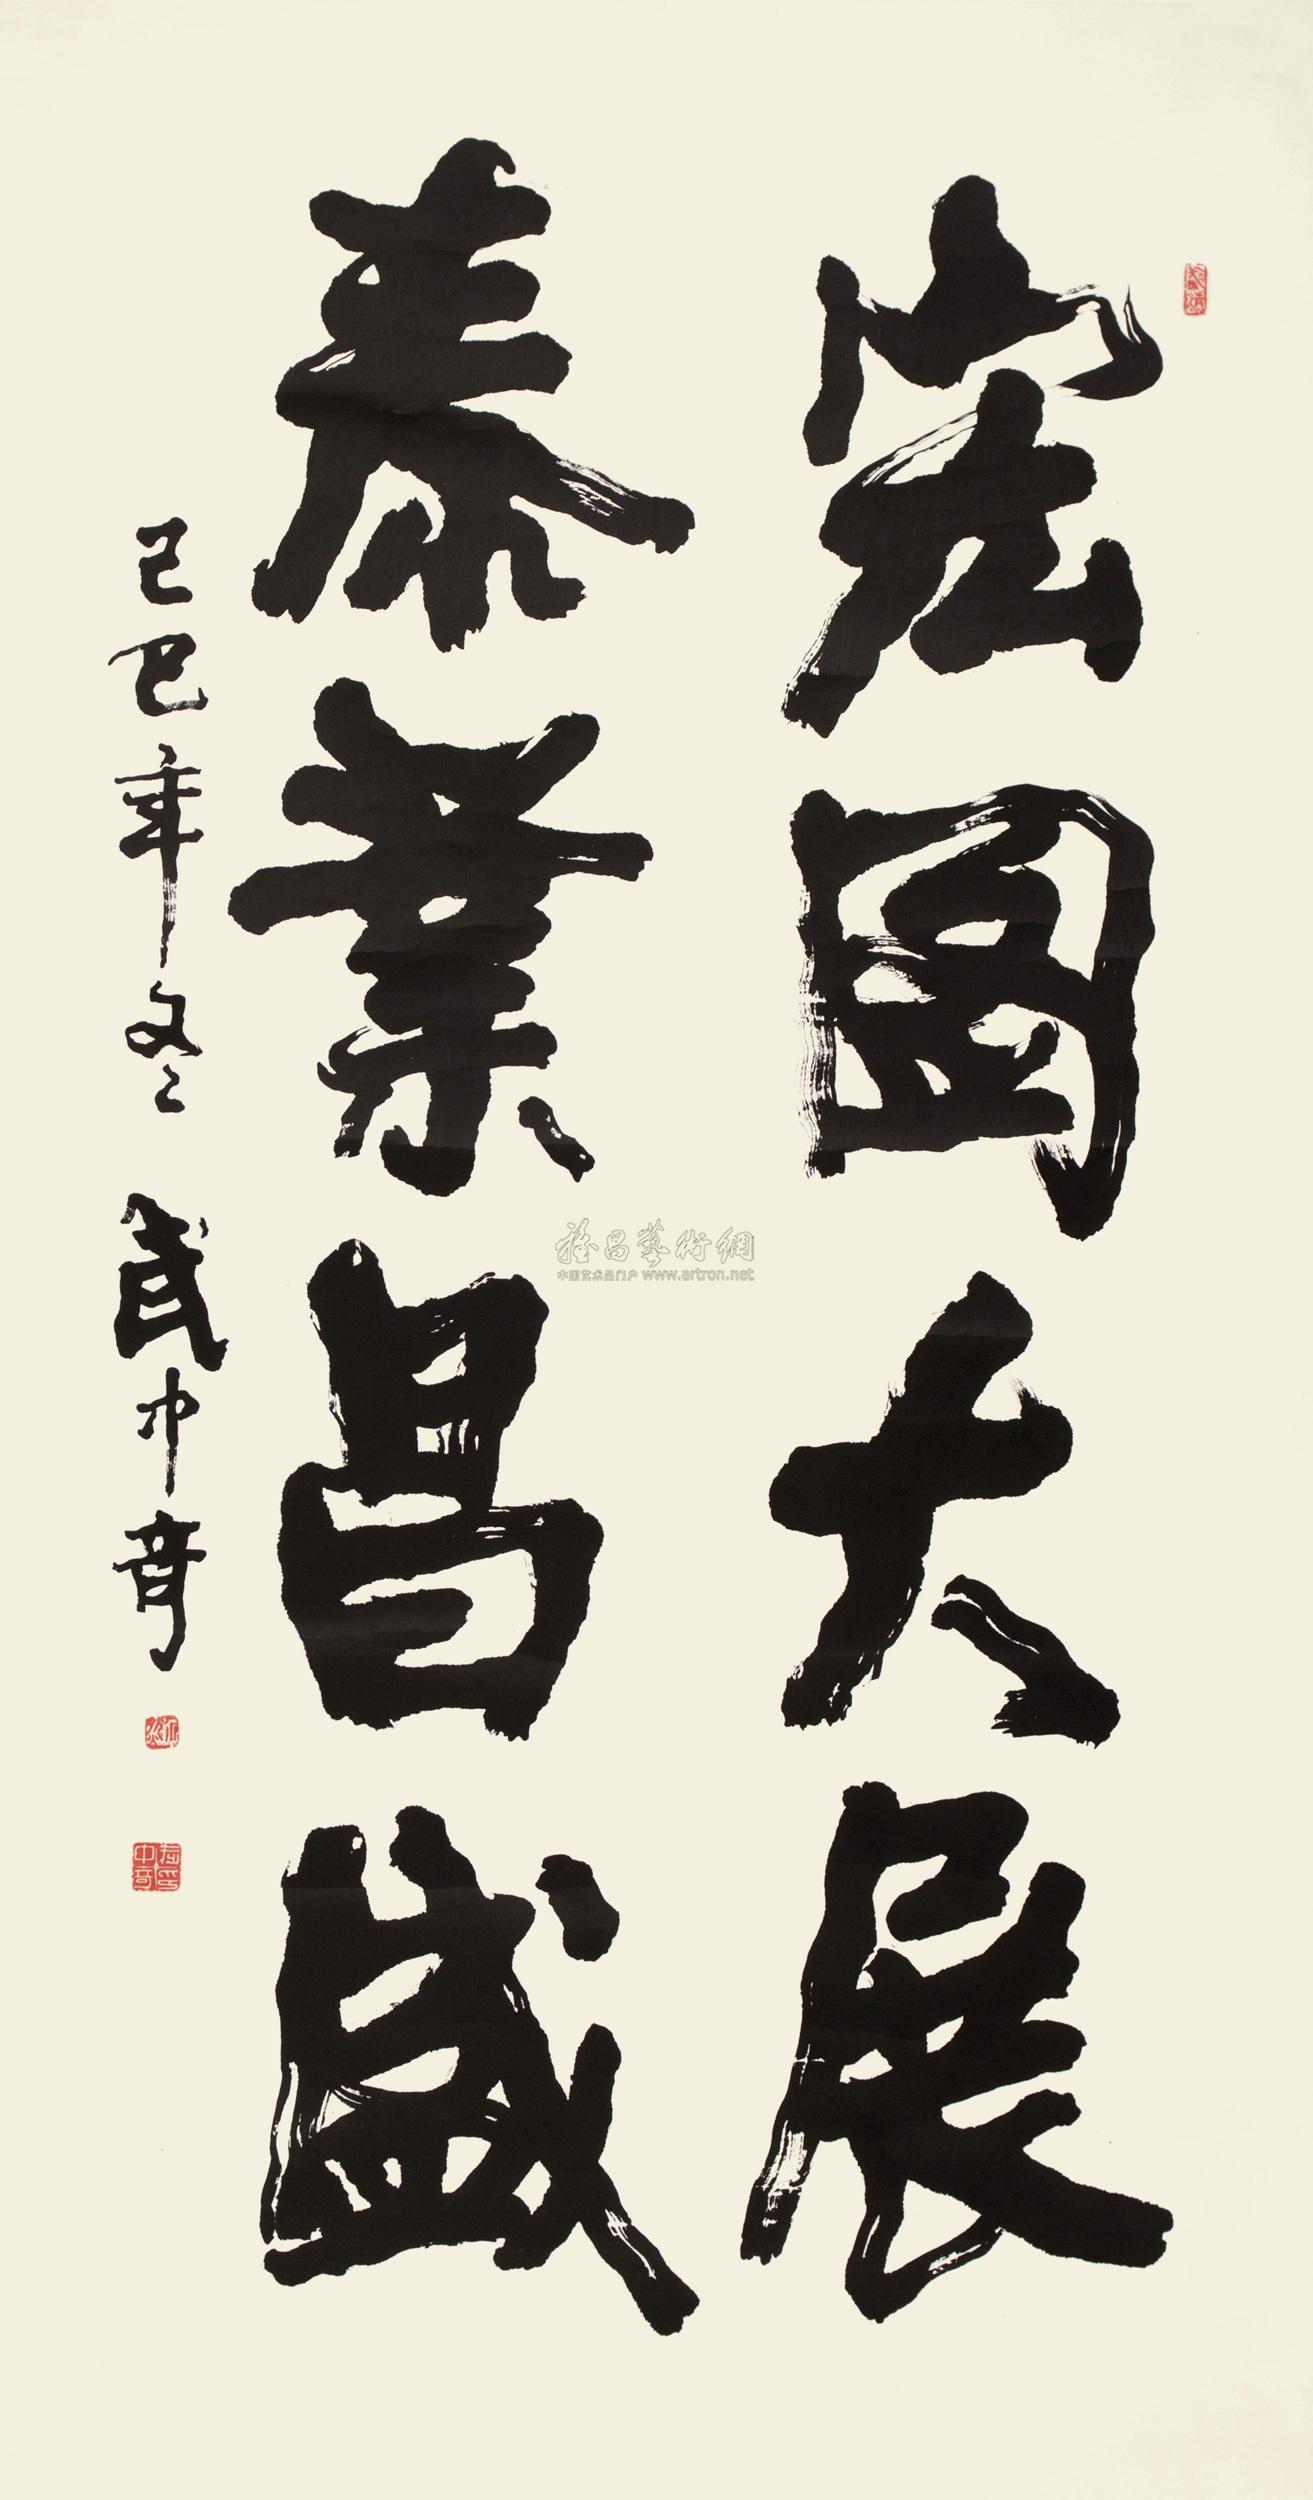 宏圖大展
泰業昌盛
己巳年冬 武中奇
雅昌藝術網
中国艺术品门户 www.artron.net